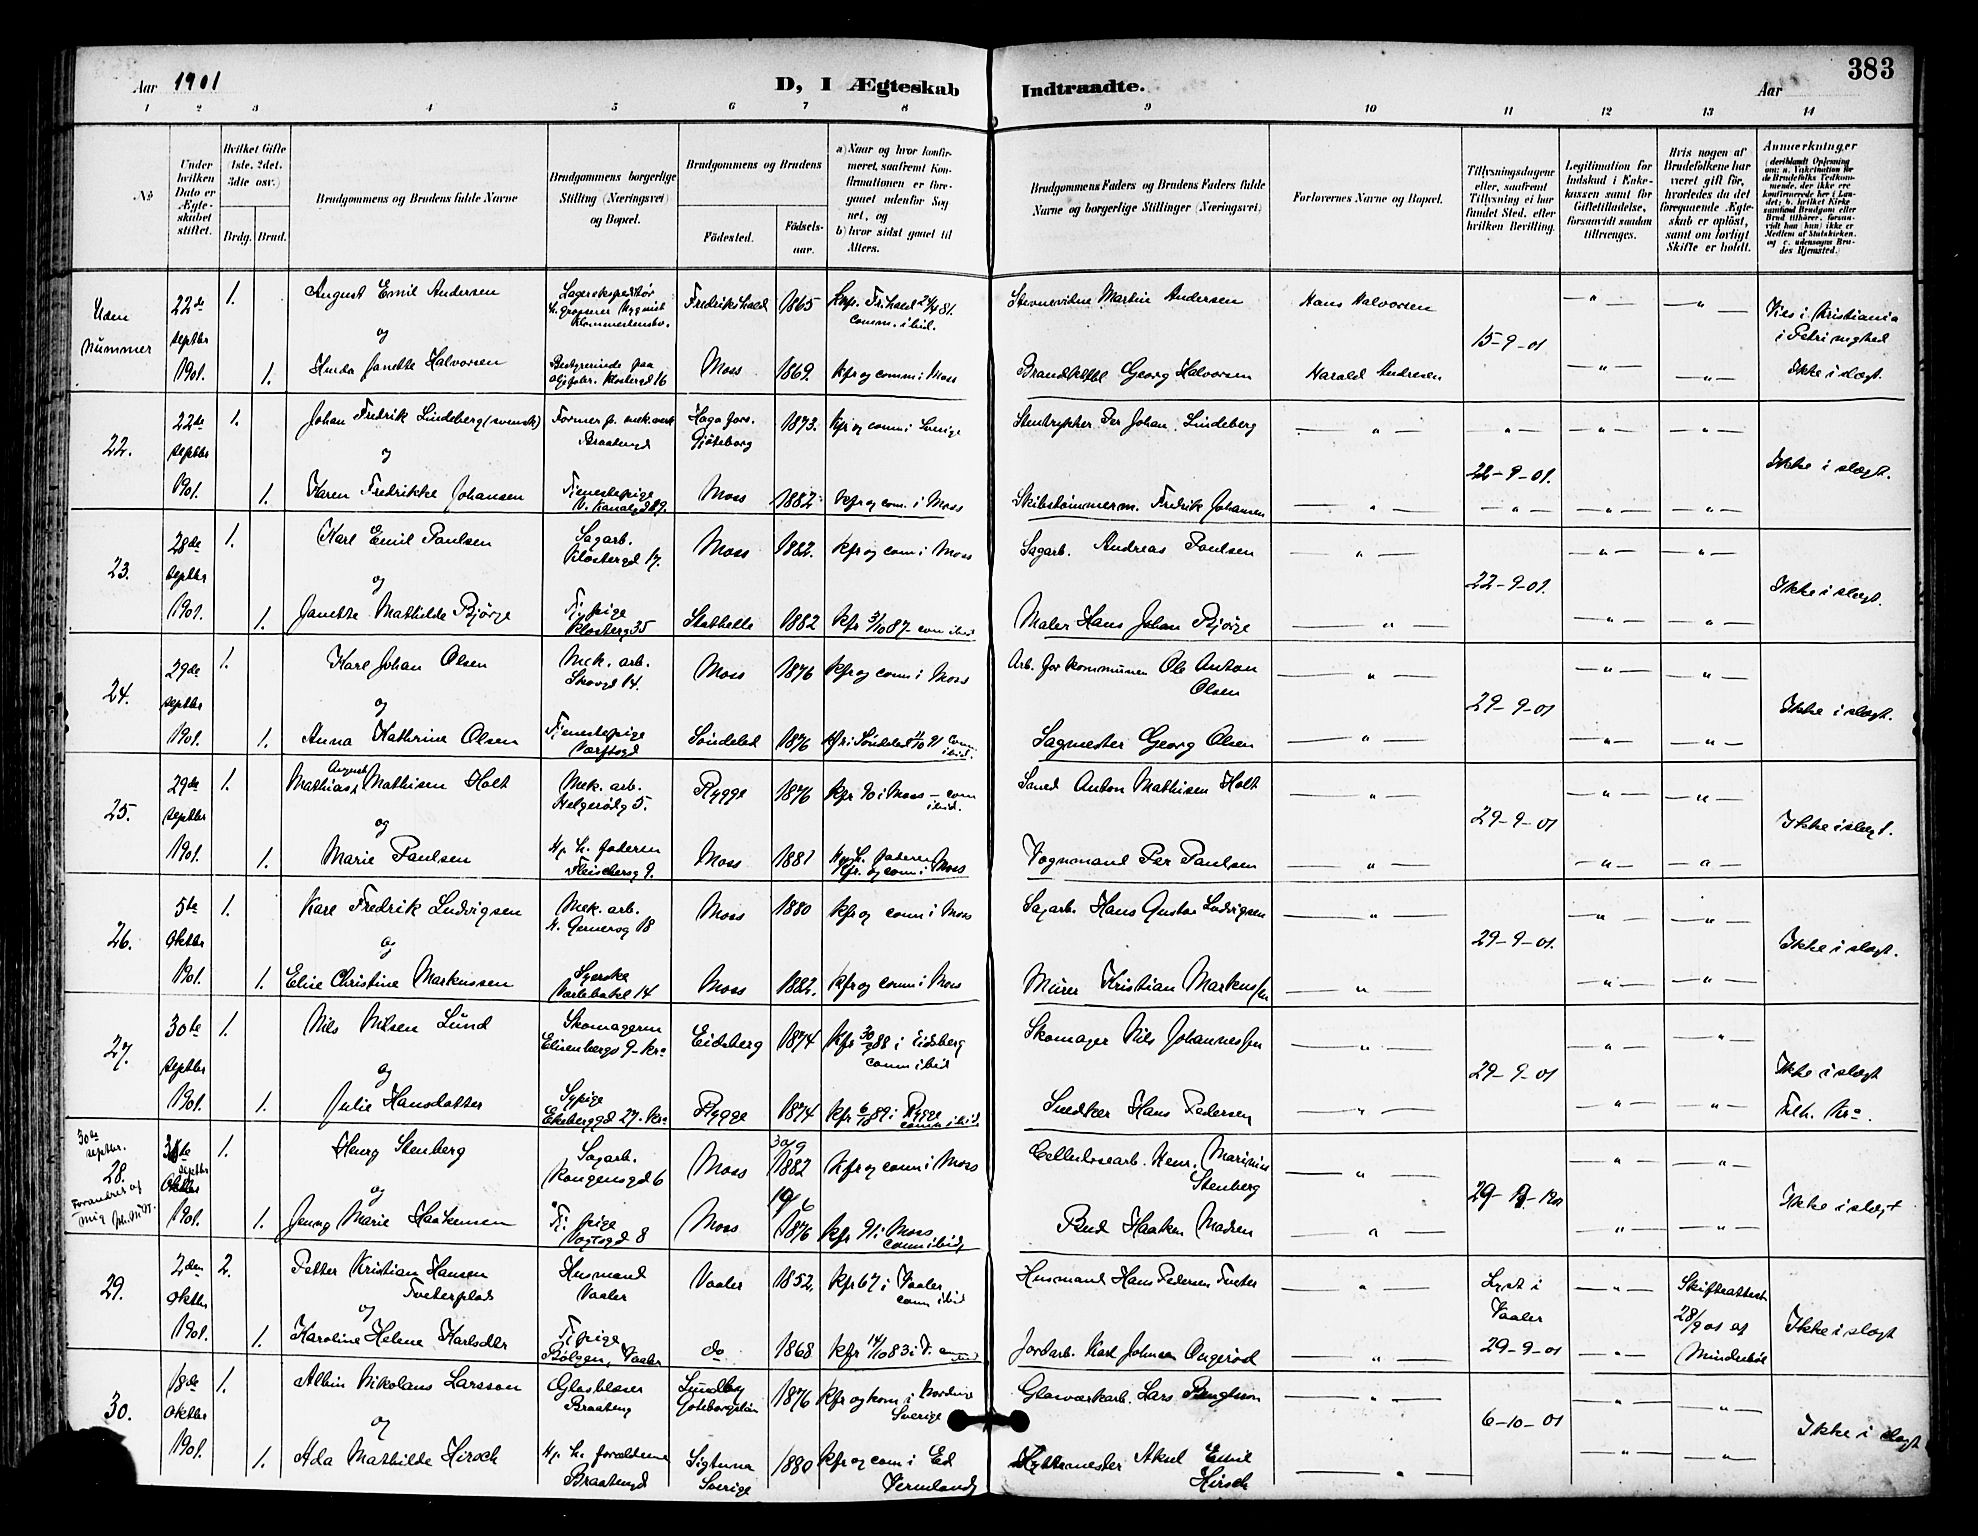 383
Aar 1901
D, I Ægteskab Indtraadte.
Aar
1 2 3 4 5 6 7 8 9 10 11 12 13 14
No.
Under hvilken Dato er Ægteskabet stiftet.
Hvilket Gifte (1ste, 2det, 3die osv.)
Brdg. Brud.
Brudgommens og Brudens fulde Navne
Brudgommens borgerlige Stilling (Næringsvei) og Bopæl.
Brudgommens og Brudens
Fødested.
Fødselsaar.
a) Naar og hvor konfirmeret, saafremt Konfirmationen er foregaaet udenfor Sognet, og
b) hvor sidst gaaet til Alters.
Brudgommens Faders og Brudens Faders fulde Navne og borgerlige Stillinger (Næringsvei)
Forlovernes Navne og Bopæl.
Tillysningsdagene eller, saafremt Tillysning ei har fundet Sted, efter hvilken Bevilling.
Legitimation for Indskud i Enkekassen samt for Giftetilladelse, forsaavidt saadan tiltrænges.
Hvis nogen af Brudefolkene har været gift før, hvorledes da det foregaaende Ægteskab er opløst, samt om lovligt Skifte er holdt.
Anmerkninger
Uden Nummer 22de septbr 1901. 1. August Emil Andersen Fredrikshald 1865 comm. ibid. Stevnevidne Martin Andersen Hans Halvorsen 15-9-01 Vies i Kristiania
og
1. Hulda Janette Halvorsen Moss 1869. kfr og comm i Moss Georg Halvorsen Harald Andresen Ikke i slægt.
22. 22de septbr 1901. 1. Johan Fredrik Lindeberg (svensk) Former p. mek. verk Braatengd Haga fors. Gjøteborg 1873. Kfr og comm i Sverige Stentrykker Per Johan Lindeberg 22-9-01. Ikke i slægt.
og
1. Karen Fredrikke Johansen Tjenestepige Moss 1882 kfr og com. i Moss Skibstømmerm. Fredrik Johansen
23. 28de septbr 1901. 1. Karl Emil Paulsen Sagarb. Klostergd 17. Moss 1882. kfr og com i Moss Sagarb. Andreas Paulsen 22-9-01. Ikke i slægt.
og
1. Janette Mathilde Bjørge Tj. pige Klosterg 35 Stathelle 1882 com ibid Maler Hans Johan Bjørge
24. 29de septbr 1901. 1. Karl Johan Olsen Mek. arb. Skovgd 14. Moss 1876 kfr og com i Moss Arb. for kommunen Ole Anton Olsen 29-9-01 Ikke i slægt.
og
1. Anna Kathrine Olsen Tjenestepige Værftsgd Søndeled 1876 kfr i Søndeled 91 com ibid. Sagmester Georg Olsen
25. 29de septbr 1901. 1. Mathias August Mathisen Holt Mek. arb. Helgerødg 5. Rygge 1876 kfr 90 i Moss – com ibid. Anton Mathisen Holt 29-9-01 Ikke i slægt.
og
1. Marie Paulsen Hj. h. faderen Fleischersg 9. Moss 1881 Kfr. og com i Moss Vognmand Per Paulsen
26. 5te Oktbr 1901. 1. Karl Fredrik Ludvigsen Mek. arb. N. Gernersg 18 Moss 1880 kfr og com i Moss Sagarb. Hans Gustav Ludvigsen 29-9-01. Ikke i slægt.
og
1. Elise Christine Markussen Syerske Varlebakl 14 Moss 1882. kfr og com i Moss Murer Kristian Markussen
27. 30te septbr 1901. 1. Nils Nilsen Lund Skomagersv Elisenbergv 9 – Kra Eidsberg 1874 kfr 30/9 88 i Eidsberg comm ibid Skomager Nils Johannessen 29-9-01 Ikke i slægt
og
1. Julie Hansdatter Sypige Ekeberggd 27 – Kra Rygge 1874 kfr 6/10 89 i Rygge comm ibid Snedker Hans Pedersen Tilh. Kra.
30te septbr. 28. Forandret af mig septbr Oktbr 1901. 1. Henry Stenberg Sagarb. Kongensgd 6 Moss 30/9 1882 kfr og com i Moss Cellulosearb. Henr. Marinius Stenberg Ikke i slægt
og
1. Jenny Marie Haakensen Tj. pige Vogtsgd 8 Moss 19/6 1876 kfr 91 i Moss com ibid Bud Haaken Madsen
29. 2den Oktbr 1901. 2. Petter Kristian Hansen Tveterplads Husmand Vaaler Vaaler 1852 kfr 67 i Vaaler com ibid Husmand Hans Pedersen Tveter Lyst i Vaaler 29-9-01 Skifteattest 28/9 01 af Ikke i slægt
og
1. Karoline Helene Karlsdtr Tj. pige Bølgen, Vaaler do 1868 kfr 14/10 83 i V. Jordarb. Karl Johnsen
30. 18de Oktbr 1901. 1. Albin Nikolaus Larsson Glasblæser Braateng Lundby Gøteborgslän 1876 kfr og kom i Sverige Glasværkarb. Lars Bengtson 6-10-01 Ikke i slægt
og
1. Ada Mathilde Hirsch Hj. h. forældrene Braatengd Sigtuna Sverige 1880 kfr og com i Ed Vermland Hyttemester Aksel Emil Hirsch